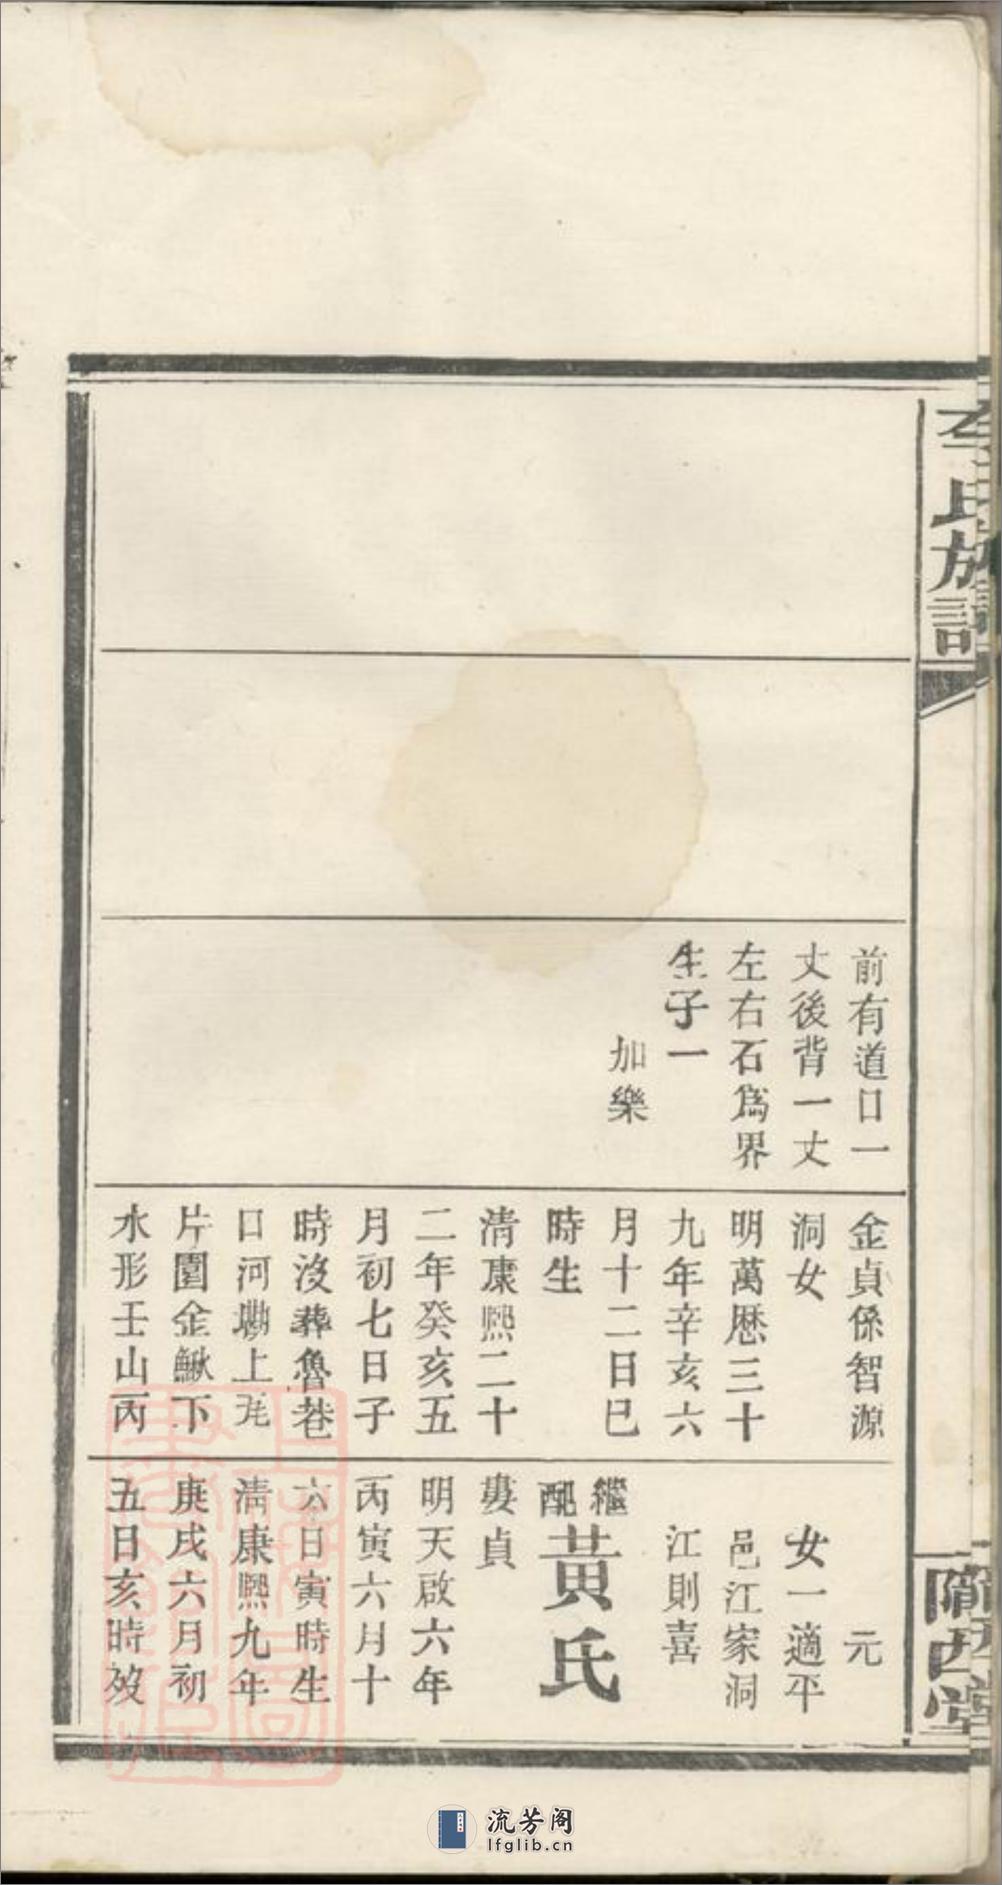 李氏族譜
前有道口一
丈後背一丈
左右石爲界
生子一
加樂
金貞係智源
洞女
明萬曆三十
九年辛亥六
月十二日巳
時生
清康熙二十
二年癸亥五
月初七日子
時沒葬魯巷
口河墈上
片園金鰍下
水形壬山丙
元
女一適平
邑江家洞
江則喜
繼配黃氏
婁貞
明天啟六年
丙寅六月十
六日寅時生
清康熙九年
庚戌六月初
五日亥時歿
隴西堂
流芳阁
lfglib.cn